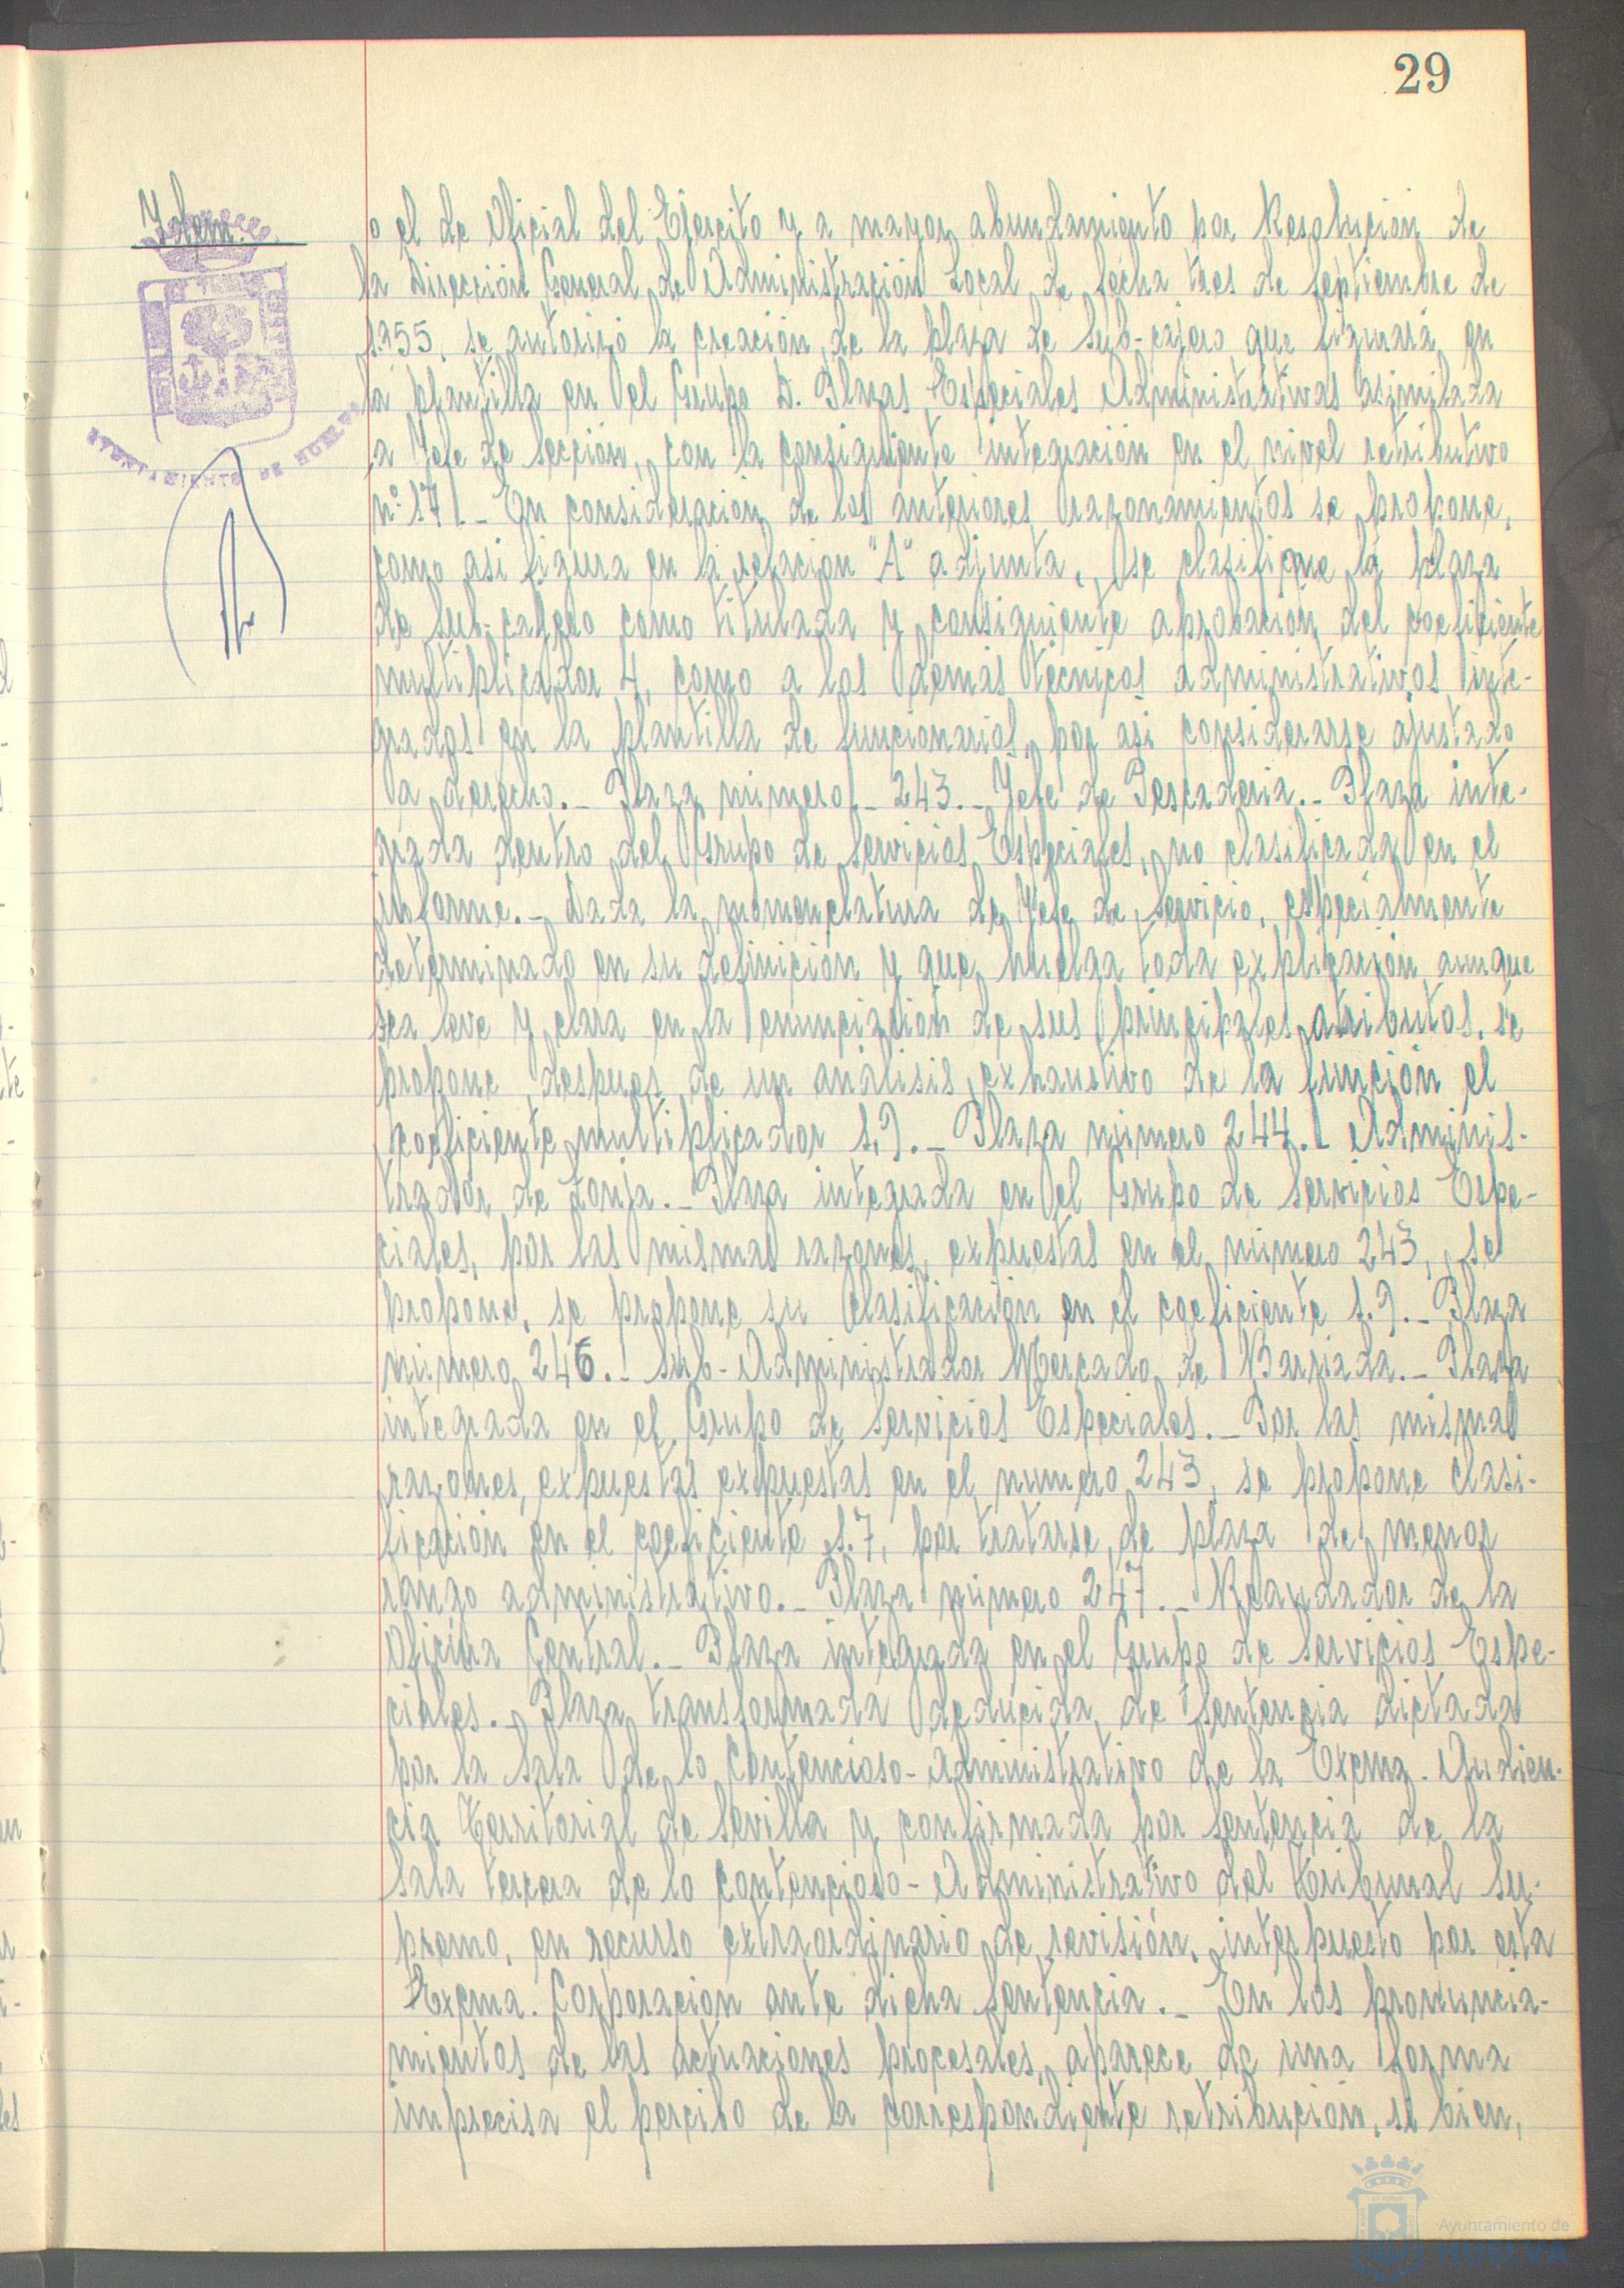 29
Idem.
AYUNTAMIENTO DE HUELVA
o el de Oficial del Ejercito y a mayor abundamiento por Resolucion de
la Dirección General de Administración Local de fecha tres de Septiembre de
1.955, se autorizó la creación de la plaza de Sub-cajero que figurará en
la plantilla en el Grupo D. Plazas Especiales Administrativas asimilada
a Jefe de Sección, con la consiguiente integración en el nivel retributivo
nº 17.- En consideración de los anteriores razonamientos se propone,
como asi figura en la relacion "A" adjunta, se clasifique la plaza
de Sub-cajero como titulada y consiguiente aprobación del coeficiente
multiplicador 4, como a los demás técnicos administrativos inte-
grados en la plantilla de funcionarios, por asi considerarse ajustado
a derecho.- Plaza número.- 243.- Jefe de Pescaderia.- Plaza inte-
grada dentro del Grupo de Servicios Especiales, no clasificada en el
informe.- Dada la nomenclatura de Jefe de Servicio, especialmente
determinado en su definición y que huelga toda explicación aunque
sea leve y clara en la enunciación de sus principales atributos, se
propone, despues de un análisis exhaustivo de la función el
coeficiente multiplicador 1,9.- Plaza número 244.- Adminis-
trador de Lonja.- Plaza integrada en el Grupo de Servicios Espe-
ciales, por las mismas razones, expuestas en el número 243, se
propone, se propone su clasificación en el coeficiente 1.9.- Plaza
número 246.- Sub-Administrador Mercado de Barriada.- Plaza
integrada en el Grupo de Servicios Especiales.- Por las mismas
razones, expuestas expuestas en el número 243, se propone clasi-
ficación en el coeficiente 1.7, por tratarse de plaza de menor
rango administrativo.- Plaza número 247.- Recaudador de la
Oficina Central.- Plaza integrada en el Grupo de Servicios Espe-
ciales.- Plaza transformada deducida de Sentencia dictada
por la Sala de lo Contencioso-Administrativo de la Excma. Audien-
cia Territorial de Sevilla y confirmada por Sentencia de la
Sala tercera de lo contencioso-Administrativo del Tribunal Su-
premo, en recurso extraordinario de revisión, interpuesto por esta
Excma. Corporacion ante dicha Sentencia.- En los pronuncia-
mientos de las actuaciones procesales, aparece de una forma
imprecisa el percibo de la correspondiente retribución, si bien,
Ayuntamiento de
HUELVA